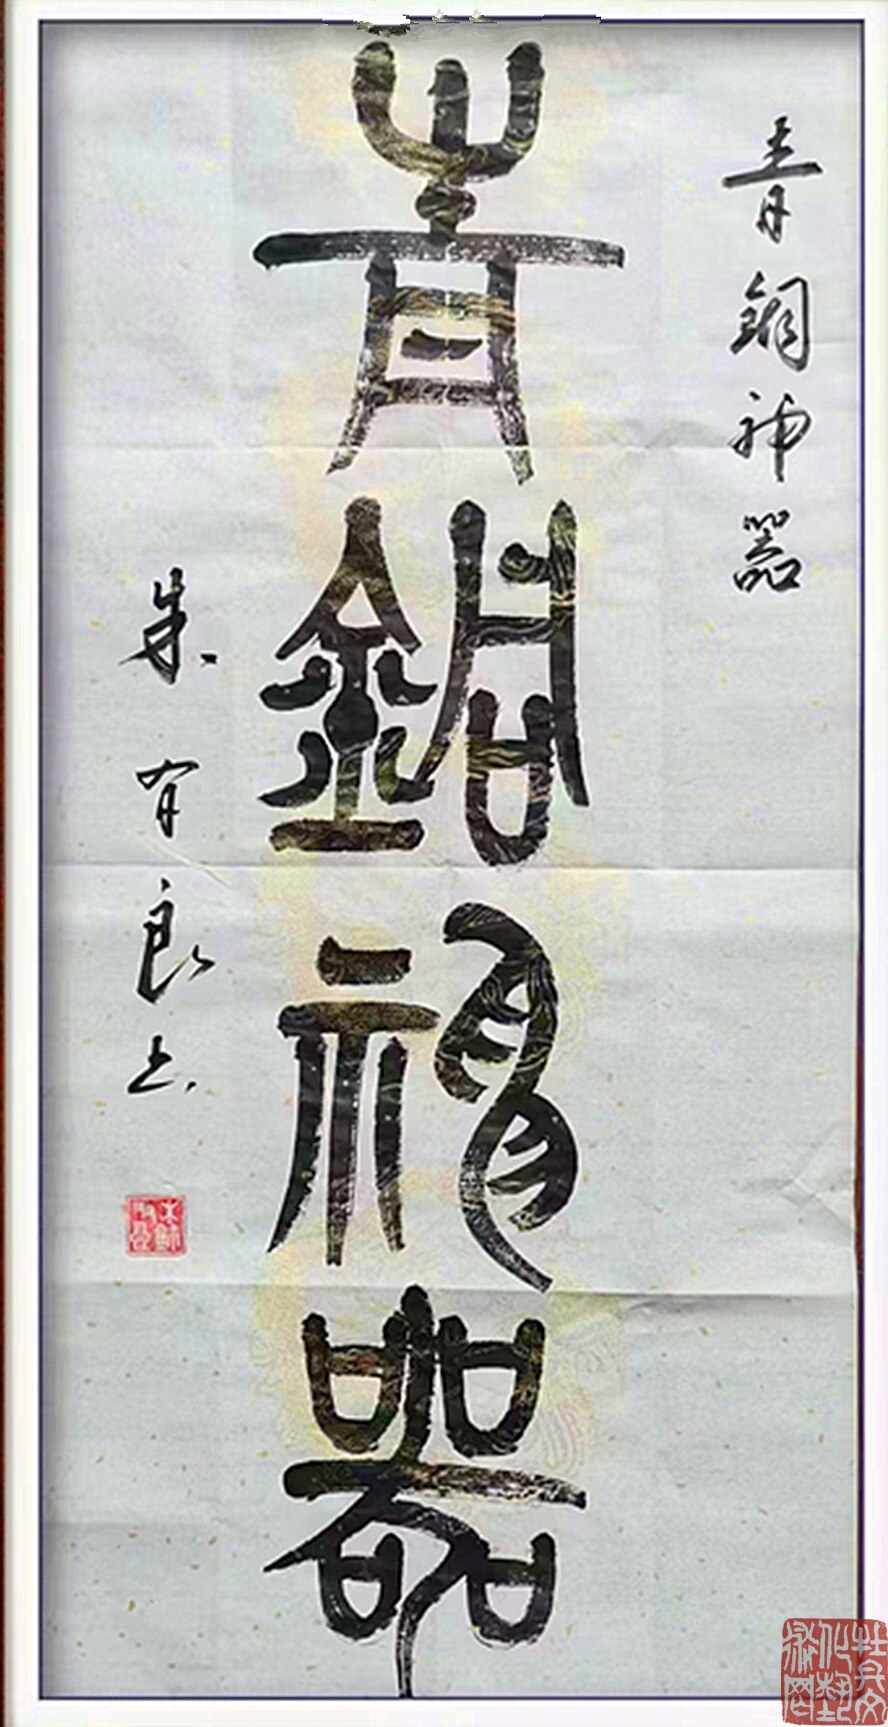 青銅神器
青銅神器
朱有良书